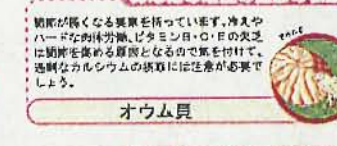 関節が弱くなる要素を持っています。冷えや
ハードな肉体労働、ビタミンB・C・Eの欠乏
は関節を傷める原因となるので気を付けて。
過剰なカルシウムの摂取には注意が必要で
しょう。
オウム貝